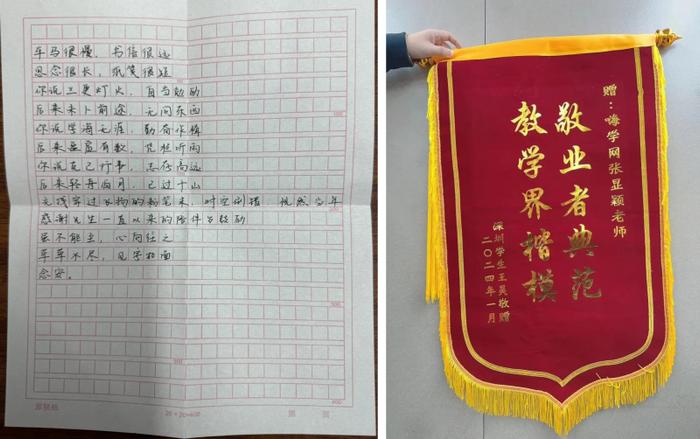 车马很慢，书信很远
思念很长，纸笺很短
你说三更灯火，自当勉励
后来未卜前途，无问东西
你说学海无涯，勤奋作楫
后来虽处有歉，凭栏听雨
你说克己行事，志存高远
后来轻舟向月，已过千山
光线穿过飞扬的粉笔末，时空倒错，恍然当年
感谢先生一直以来的陪伴与鼓励
虽不能至，心向往之
草草不尽，见字如面
念安。
20×20=400
赠：嗨学网张显颖老师
敬业者典范
教学界楷模
深圳学生王昊敬赠
二〇二四年一月